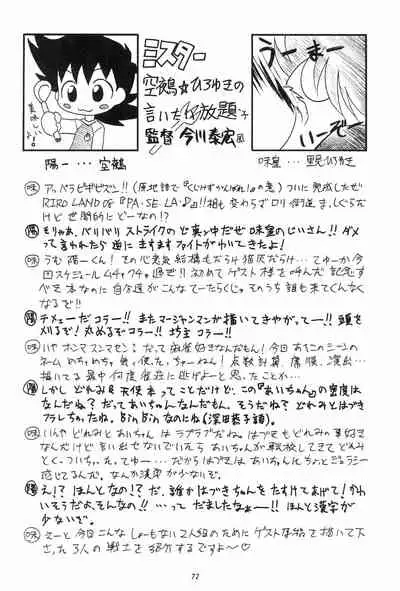 ミスター
空鶴☆ひろゆきの
言いたい放題
監督 今川泰宏
美味しい!
うーまー
いーぞー
陽一…空鶴
味皇…里見ひろゆき
味 アッパラピギビズン!! ついに完成したぜ
RIRO LAND 08『PA・SE・LA』!! 相も変わらずロリ街道まっしぐらだ
けど世間的にどーなの!?
陽 もりゃあ、バリバリストライクのど真ン中だぜ味皇のじいさん!! ダメ
って言われたら逆にますますファイトがわいてきたよ!
味 うむ陽一くん! その心意気 だらけ…てゆーか今
回スケジュールムチャクチャ 初めてゲスト様を呼んだ記念す
べき本なのに自分達がこんなてーたらくじゃそのうち誰も来てくんなく
なるで!!
陽 テメェーだコラー!! またマージャンマンガ描いてきやがってー!! 頭を
刈るぞ! 丸めるぞコラー!! 坊主コラー!!
味 いやホンマスンマセン! だって麻雀好きなんだもん! 今回あそこのシーンの
ネームめちゃめちゃ気ィ使た。ちゅーねん! 点数計算、席順、演出…
描いてる最中何度雀荘に逃げよーと思ったことか…
陽 しかしどれみ&天使本ってことだけど、この『あいちゃん』の密度は
なんだね? だってあいちゃんなんだもん。そうだね? どれみとはづき
フラレちゃったね。Bin Bin なのにね(深田恭子調)。
味 いんやどれみとあいちゃんはラブラブだね。はづきもどれみの事好き
なんだけど言い出せないでいたら あいちゃんが戦放してきてどれみ
とくっついちゃった。てゆー…だからはづきはあいちゃんにちょっとジェラシー
感じてるんだ。なんか漢字が少ないぞ。
陽 え!? ほんとなの!? だ、誰かはづきちゃんをたすけてあげて! かわ
いそうだよ、そんなの!! …って だましたなぁー!! ほんと漢字が
少ないぞ。
味 えーと今回こんなしょーもない2人組のためにゲスト原稿を描いて下
さった3人の戦士を紹介するですよ~♡
72